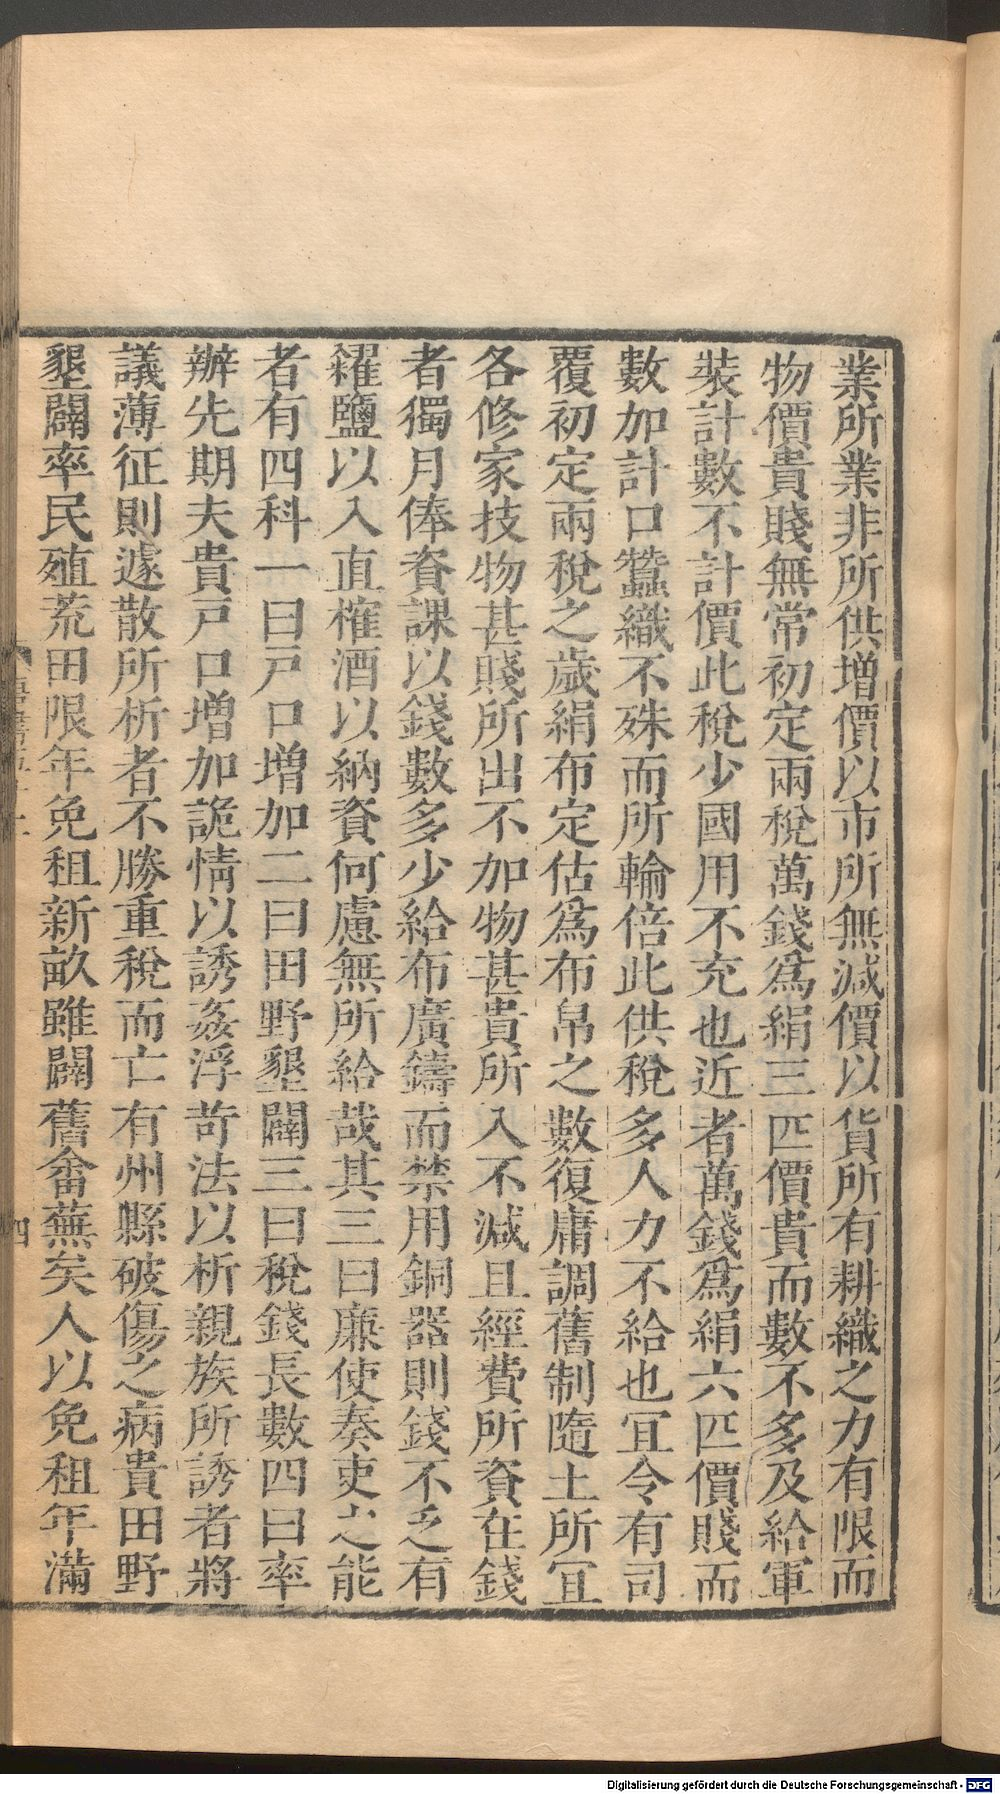 業所業非所供增價以市所無減價以貨所有耕織之力有限而
物價貴賤無常初定兩稅萬錢爲絹三匹價貴而數不多及給軍
裝計數不計價此稅少國用不充也近者萬錢爲絹六匹價賤而
數加計口蠶織不殊而所輸倍此供稅多人力不給也宜令有司
覆初定兩稅之歲絹布定估爲布帛之數復庸調舊制隨土所宜
各修家技物甚賤所出不加物甚貴所入不減且經費所資在錢
者獨月俸資課以錢數多少給布廣鑄而禁用銅器則錢不乏有
糴鹽以入直榷酒以納資何慮無所給哉其三曰廉使奏吏之能
者有四科一曰戸口增加二曰田野墾闢三曰稅錢長數四曰率
辦先期夫貴戸口增加詭情以誘姦浮苛法以析親族所誘者將
議薄征則遽散所析者不勝重稅而亡有州縣破傷之病貴田野
墾闢率民殖荒田限年免租新畝雖闢舊畬蕪矣人以免租年滿
四
Digitalisierung gefördert durch die Deutsche Forschungsgemeinschaft - DFG